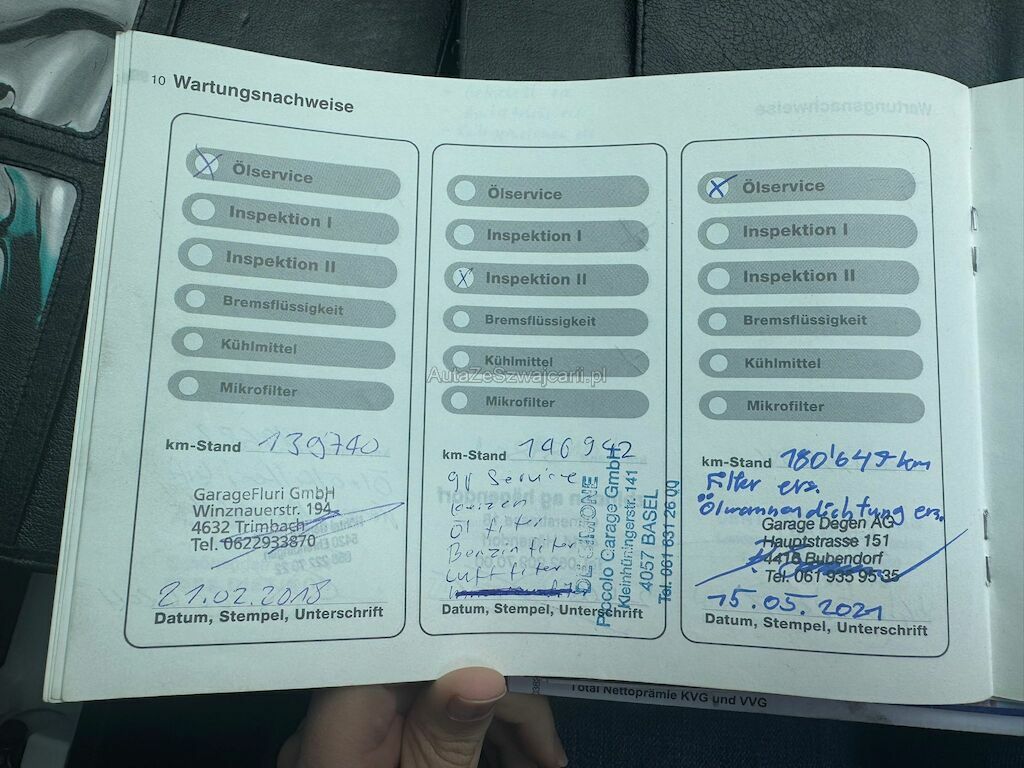 10 Wartungsnachweise
Ölservice
Inspektion I
Inspektion II
Bremsflüssigkeit
Kühlmittel
Mikrofilter
km-Stand 139740
GarageFluri GmbH
Winznauerstr. 194
4632 Trimbach
Tel. 0622933870
21.02.2018
Datum, Stempel, Unterschrift
Ölservice
Inspektion I
Inspektion II
Bremsflüssigkeit
Kühlmittel
AutaZeSzwajcarii.pl
Mikrofilter
km-Stand 146942
gr Service
Öl filter
Benzinfilter
Luftfilter
DE SIMONE
Piccolo Garage GmbH
Kleinhüningerstr. 141
4057 BASEL
Tel. 061 631 26 00
Datum, Stempel, Unterschrift
Ölservice
Inspektion I
Inspektion II
Bremsflüssigkeit
Kühlmittel
Mikrofilter
km-Stand 180'649 km
Filter ers.
Ölwannendichtung ers.
Garage Degen AG
Hauptstrasse 151
4416 Bubendorf
Tel. 061 935 95 35
15.05.2021
Datum, Stempel, Unterschrift
Total Nettoprämie KVG und VVG